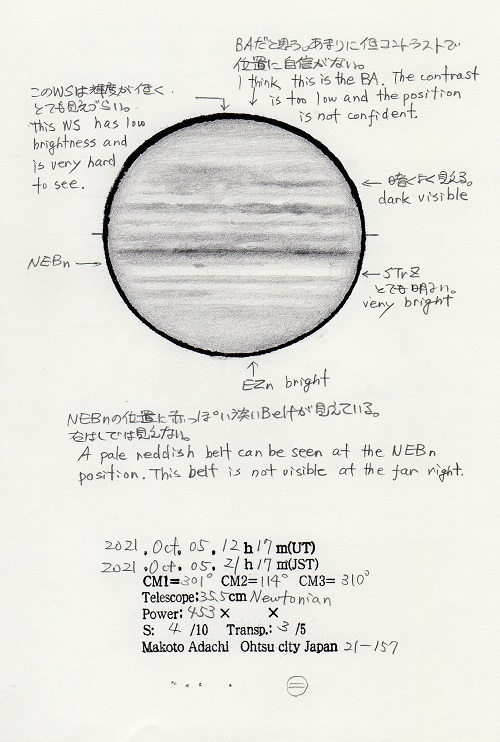 BAだと思う。あまりに低コントラストで
位置に自信がない。
I think this is the BA. The contrast
is too low and the position
is not confident.
このWSは輝度が低く、
とても見えづらい。
this WS has low
brightness and
is very hard
to see.
← 暗くよく見える。
dark visible
NEBn →
← STrZ
とても明るい。
very bright
↑
EZn bright
NEBnの位置に赤っぽい淡いBeltが見えている。
右はしでは見えない。
A pale reddish belt can be seen at the NEBn
position. This belt is not visible at the far right.
2021. Oct. 05. 12 h 17 m(UT)
2021. Oct. 05. 21 h 17 m(JST)
CM1=301° CM2=114° CM3= 310°
Telescope:35.5cm Newtonian
Power: 453 × ×
S: 4 /10 Transp.: 3 /5
Makoto Adachi Ohtsu city Japan 21-157